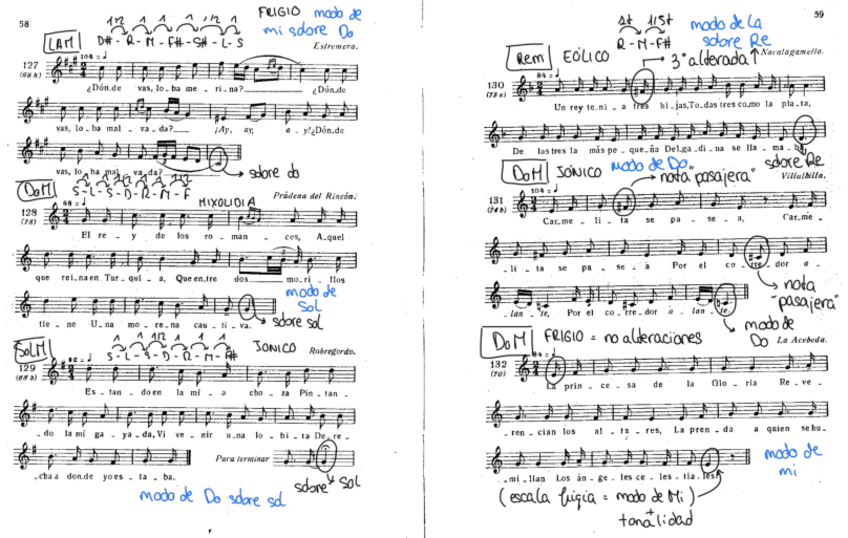 58
FRIGIO modo de
mi sobre Do
LAM
1 1/2 1 1 1 1/2 1
D# - R - M - F# - S# - L - S
Estremera.
127
(68 b)
104 =
¿Dón.de vas, lo.ba me _ ri _ na? ¿Dón.de
vas, lo _ ba mal _ va _ da? ¡Ay, ay, a _ y! ¿Dón.de
vas, lo _ ba mal _ va _ da?
sobre do
DoM
S - L - S - D - R - M - F
MIXOLIDIA
Prádena del Rincón.
128
(76)
88 =
El re _ y de los ro _ man _ ces, A.quel
que rei.na en Tur _ quí _ a, Que en.tre dos mo _ ri _ llos
modo de
sol
tie _ ne U.na mo _ re.na cau _ ti _ va.
sobre sol
SolM
1 1 1/2 1 1 1
S - L - S - D - R - M - F#
JONICO
Robregordo.
129
(68 b)
Es _ tan _ do en la mí _ a cho _ za Pin _ tan _
_ do la mi ga _ ya _ da, Vi ve _ nir u.na lo _ bi _ ta De.re _
_ cha a don.de yo es _ ta _ ba.
Para terminar
sobre sol
modo de Do sobre sol
59
1t 1/5t
R - M - F#
modo de La
sobre Re
Rem
EÓLICO
3ª alterada ↑
Navalagamella.
130
(73 e)
84 =
Un rey te.ní _ a tres hi _ jas, To.das tres co.mo la pla _ ta,
De las tres la más pe _ que.ña Del.ga _ di.na se lla _ ma _ ba.
sobre Re
DoM
JÓNICO modo de Do
"nota pasajera"
Villalbilla.
131
(74 b)
104 =
Car.me _ li _ ta se pa _ se _ a, Car.me _
_ li _ ta se pa _ se _ a Por el co _ rre _ dor a _
nota
"pasajera"
_ lan _ te, Por el co _ rre _ dor a _ lan _ te.
modo de
Do
DoM
FRIGIO = no alteraciones
La Acebeda.
132
(70)
84 =
La prin _ ce _ sa de la Glo _ ria Re _ ve _
_ ren _ cian los al _ ta _ res, La pren _ da a quien se hu _
_ mi _ llan Los án _ ge _ les ce _ les _ tia _ les.
modo de
mi
(escala frigia = modo de Mi)
+
tonalidad